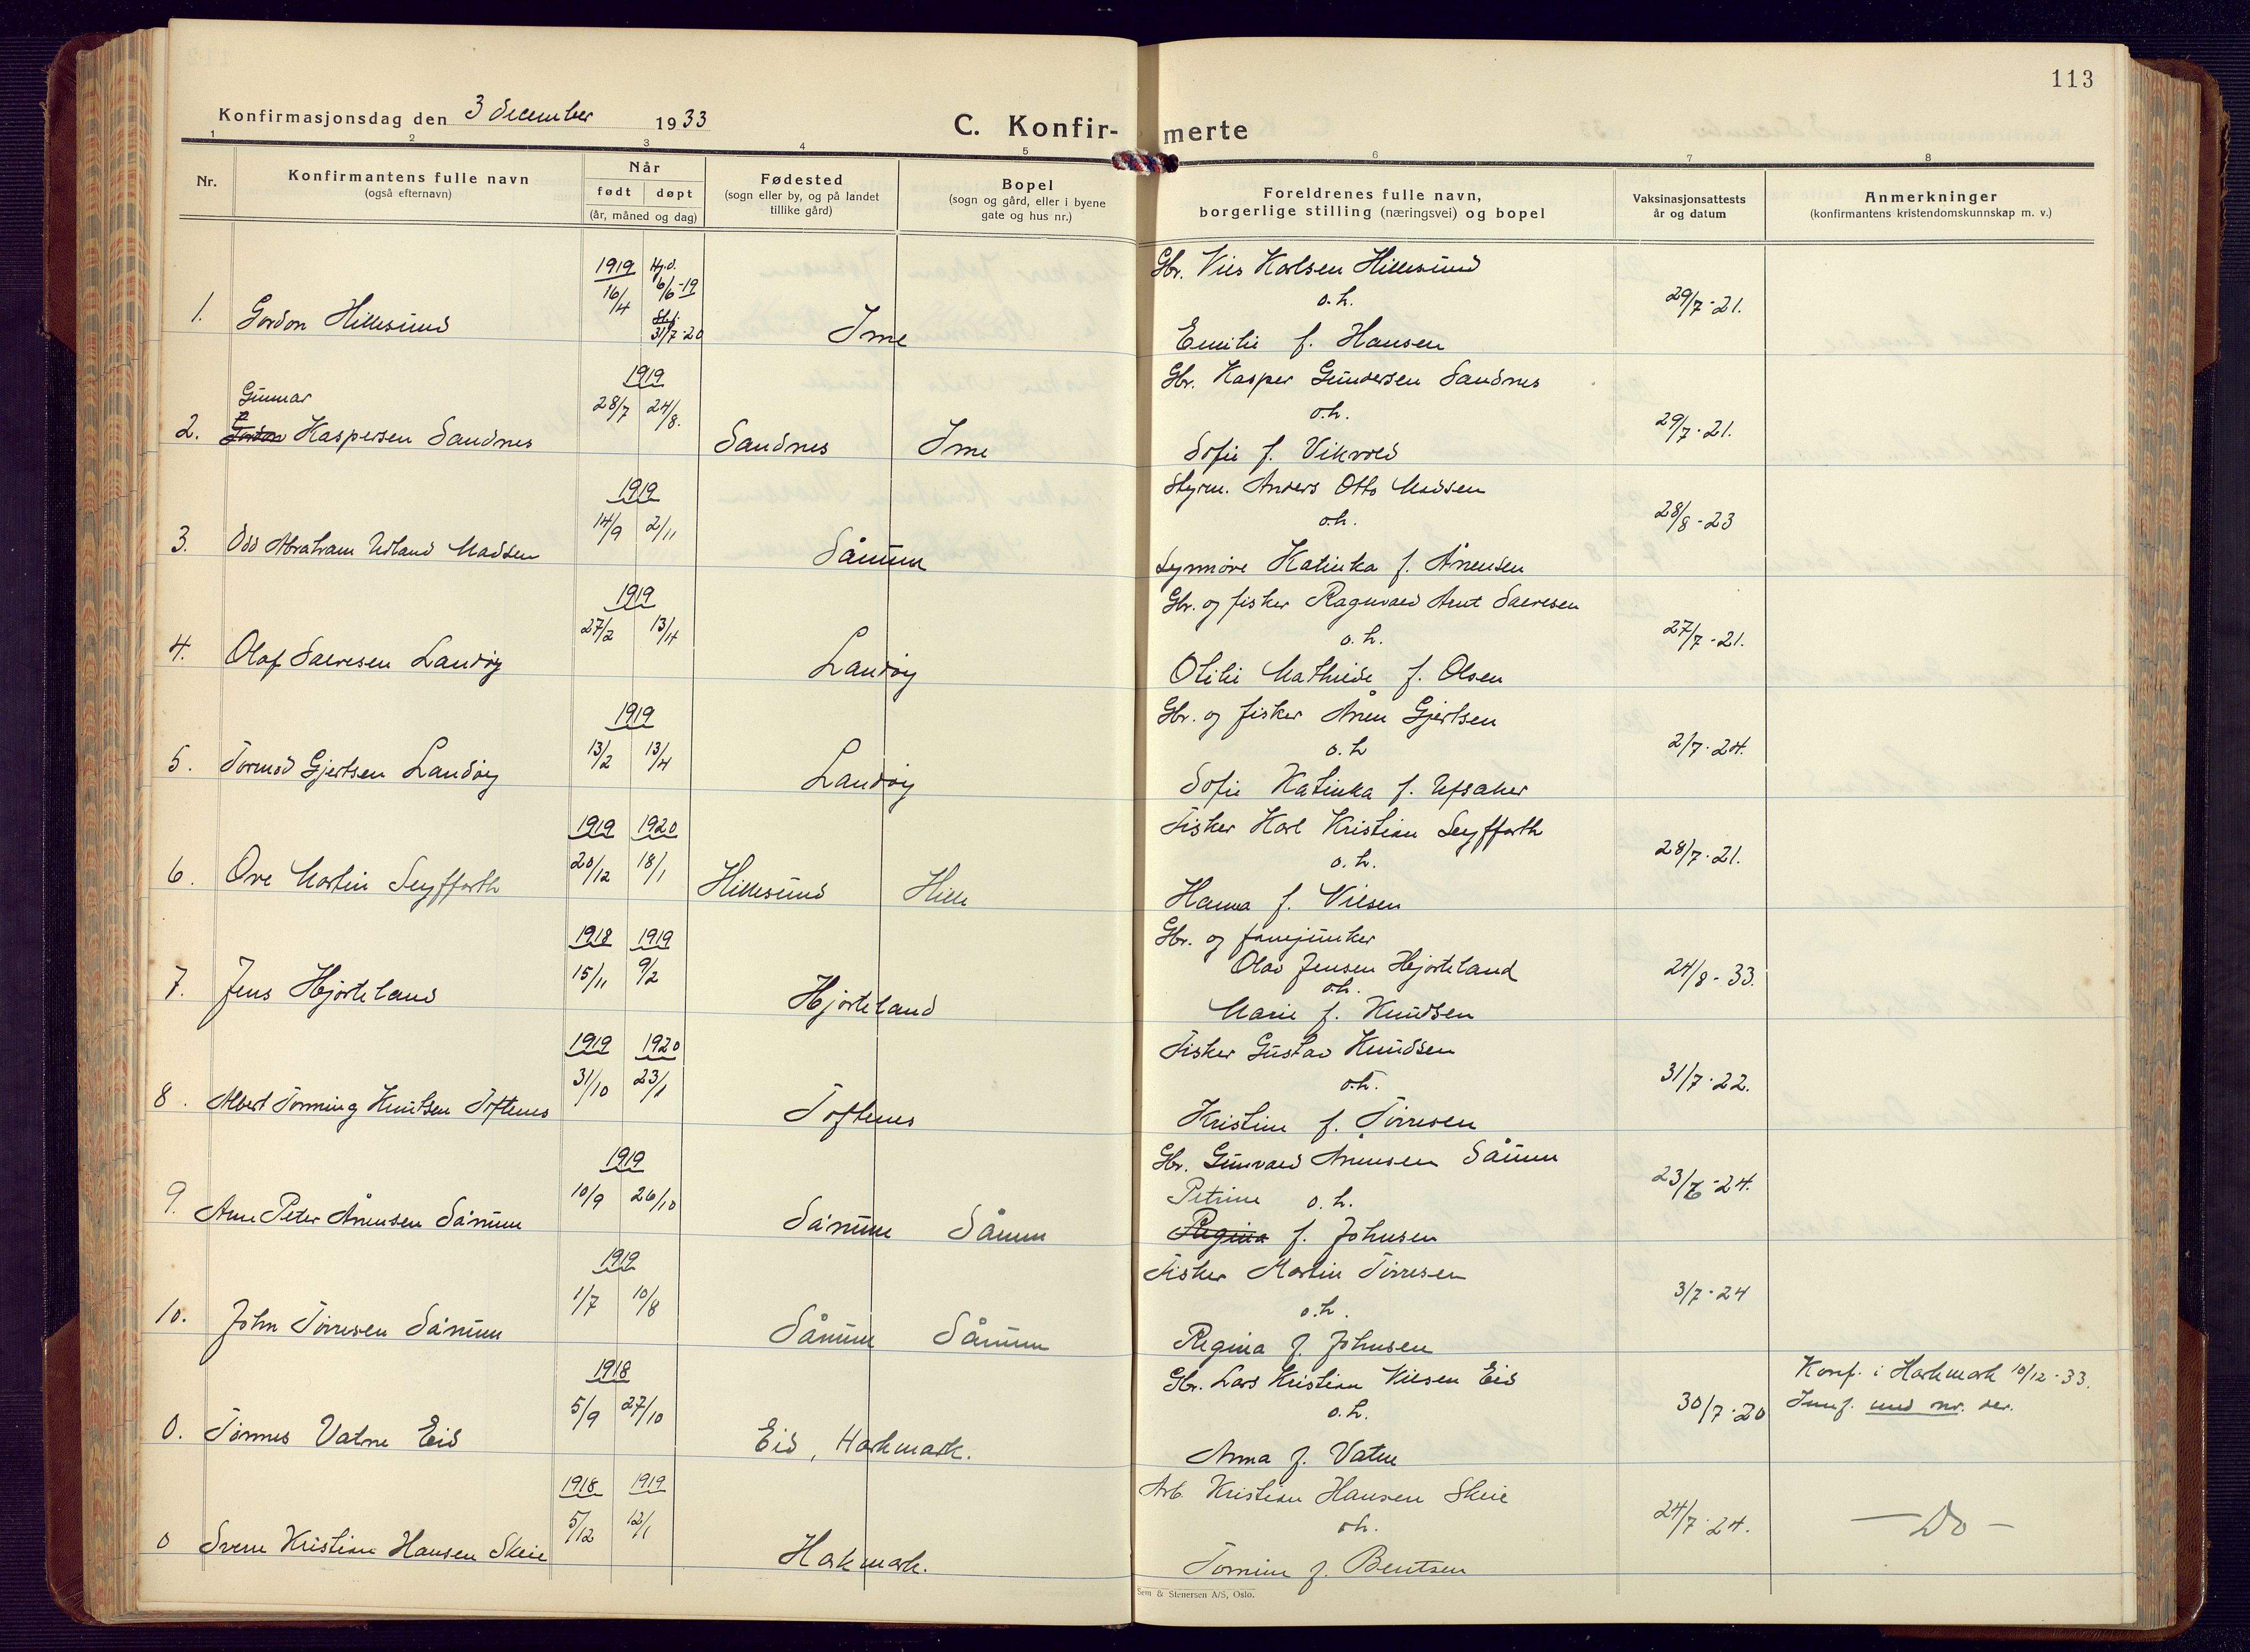 113
Konfirmasjonsdag den 3 december 1933
C. Konfir-merte
1 2 3 4 5 6 7 8
Nr.
Konfirmantens fulle navn
(også efternavn)
Når
født døpt
(år, måned og dag)
Fødested
(sogn eller by, og på landet
tillike gård)
Bopel
(sogn og gård, eller i byene
gate og hus nr.)
Foreldrenes fulle navn,
borgerlige stilling (næringsvei) og bopel
Vaksinasjonsattests
år og datum
Anmerkninger
(konfirmantens kristendomskunnskap m. v.)
1. Gordon Hillesund
1919 Hj.d.
16/4 6/6-19
31/7-20
Ime
Gbr. Nils Karlsen Hillesund
o. h.
Emilie f. Hansen
29/7-21.
Gunnar
2. Kaspersen Sandnes
1919
28/7 24/8.
Sandnes Ime
Gbr. Kasper Gundersen Sandnes
o.h.
Sofie f. Vikvold
29/7-21.
3. Odd Abraham Udland Madsen
1919
14/9 2/11
Sånum
Styrm. Anders Otto Madsen
o.h.
Synnøve Katinka f. Ånensen
28/8-23
4. Olaf Salvesen Landøy
1919
27/2 13/4
Landøy
Gbr. og fisker Ragnvald Arnt Salvesen
o. h.
Otilie Mathilde f. Olsen
27/7-21.
5. Tormod Gjertsen Landøy
1919
13/2 13/4
Landøy
Gbr. og fisker Ånen Gjertsen
o. h
Sofie Katinka f. Ufsaker
2/7-24.
6. Ove Martin Seyffarth
1919 1920
20/12 18/1
Hillesund Hille
Fisker Karl Kristian Seyffarth
o. h.
Hanna f. Nilsen
28/7-21.
7. Jens Hjorteland
1918 1919
15/11 9/2
Hjorteland
Gbr. og fanejunker
Olav Jensen Hjorteland
o.h.
Marie f. Knudsen
24/8-33.
8. Albert Tønning Knutsen Toftenes
1919 1920
31/10 23/1
Toftenes
Fisker Gustav Knudsen
o.h.
Kristine f. Tørresen
31/7-22.
9. Arne Peter Ånensen Sånum
1919
10/9 26/10
Sånum Sånum
Gbr. Gunvald Ånensen Sånum
Petrine o. h.
Regina f. Johnsen
23/6-24.
10. John Tørresen Sånum
1919
1/7 10/8
Sånum Sånum
Fisker Martin Tørresen
o.h.
Regina f. Johnsen
3/7-24
0. Tønnes Vatne Eid
1918
5/9 27/10
Eid, Harkmark.
Gbr. Lars Kristian Nilsen Eid
o.h.
Anna f. Vatne
30/7-20
Konf. i Harkmark 10/12-33.
Innf. med nr. der.
0 Sverre Kristian Hansen Skeie
1918 1919
5/12 12/1
Harkmark.
Arb. Kristian Hansen Skeie
o.h.
Tomine f. Bentsen
24/7-24.
— Do —
Sem & Stenersen A/S, Oslo.